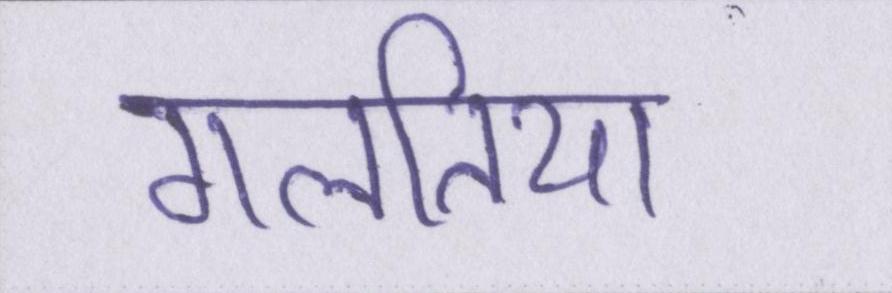 गलतिया